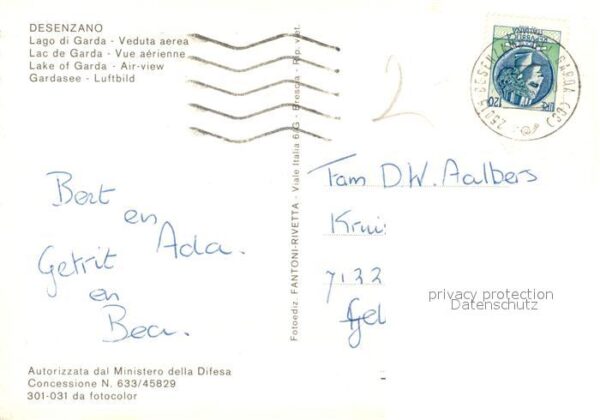 DESENZANO
Lago di Garda - Veduta aerea
Lac de Garda - Vue aérienne
Lake of Garda - Air-view
Gardasee - Luftbild
Bert en
Ada.
Getrit
en
Bea.
Autorizzata dal Ministero della Difesa
Concessione N. 633/45829
301-031 da fotocolor
Fotoediz. FANTONI-RIVETTA - Viale Italia 6/G - Brescia - Rip. vet.
2
LIRE 120
25015 DESENZANO GARDA (BS)
Fam D.W. Aalbers
Krui
7122
privacy protection
Datenschutz